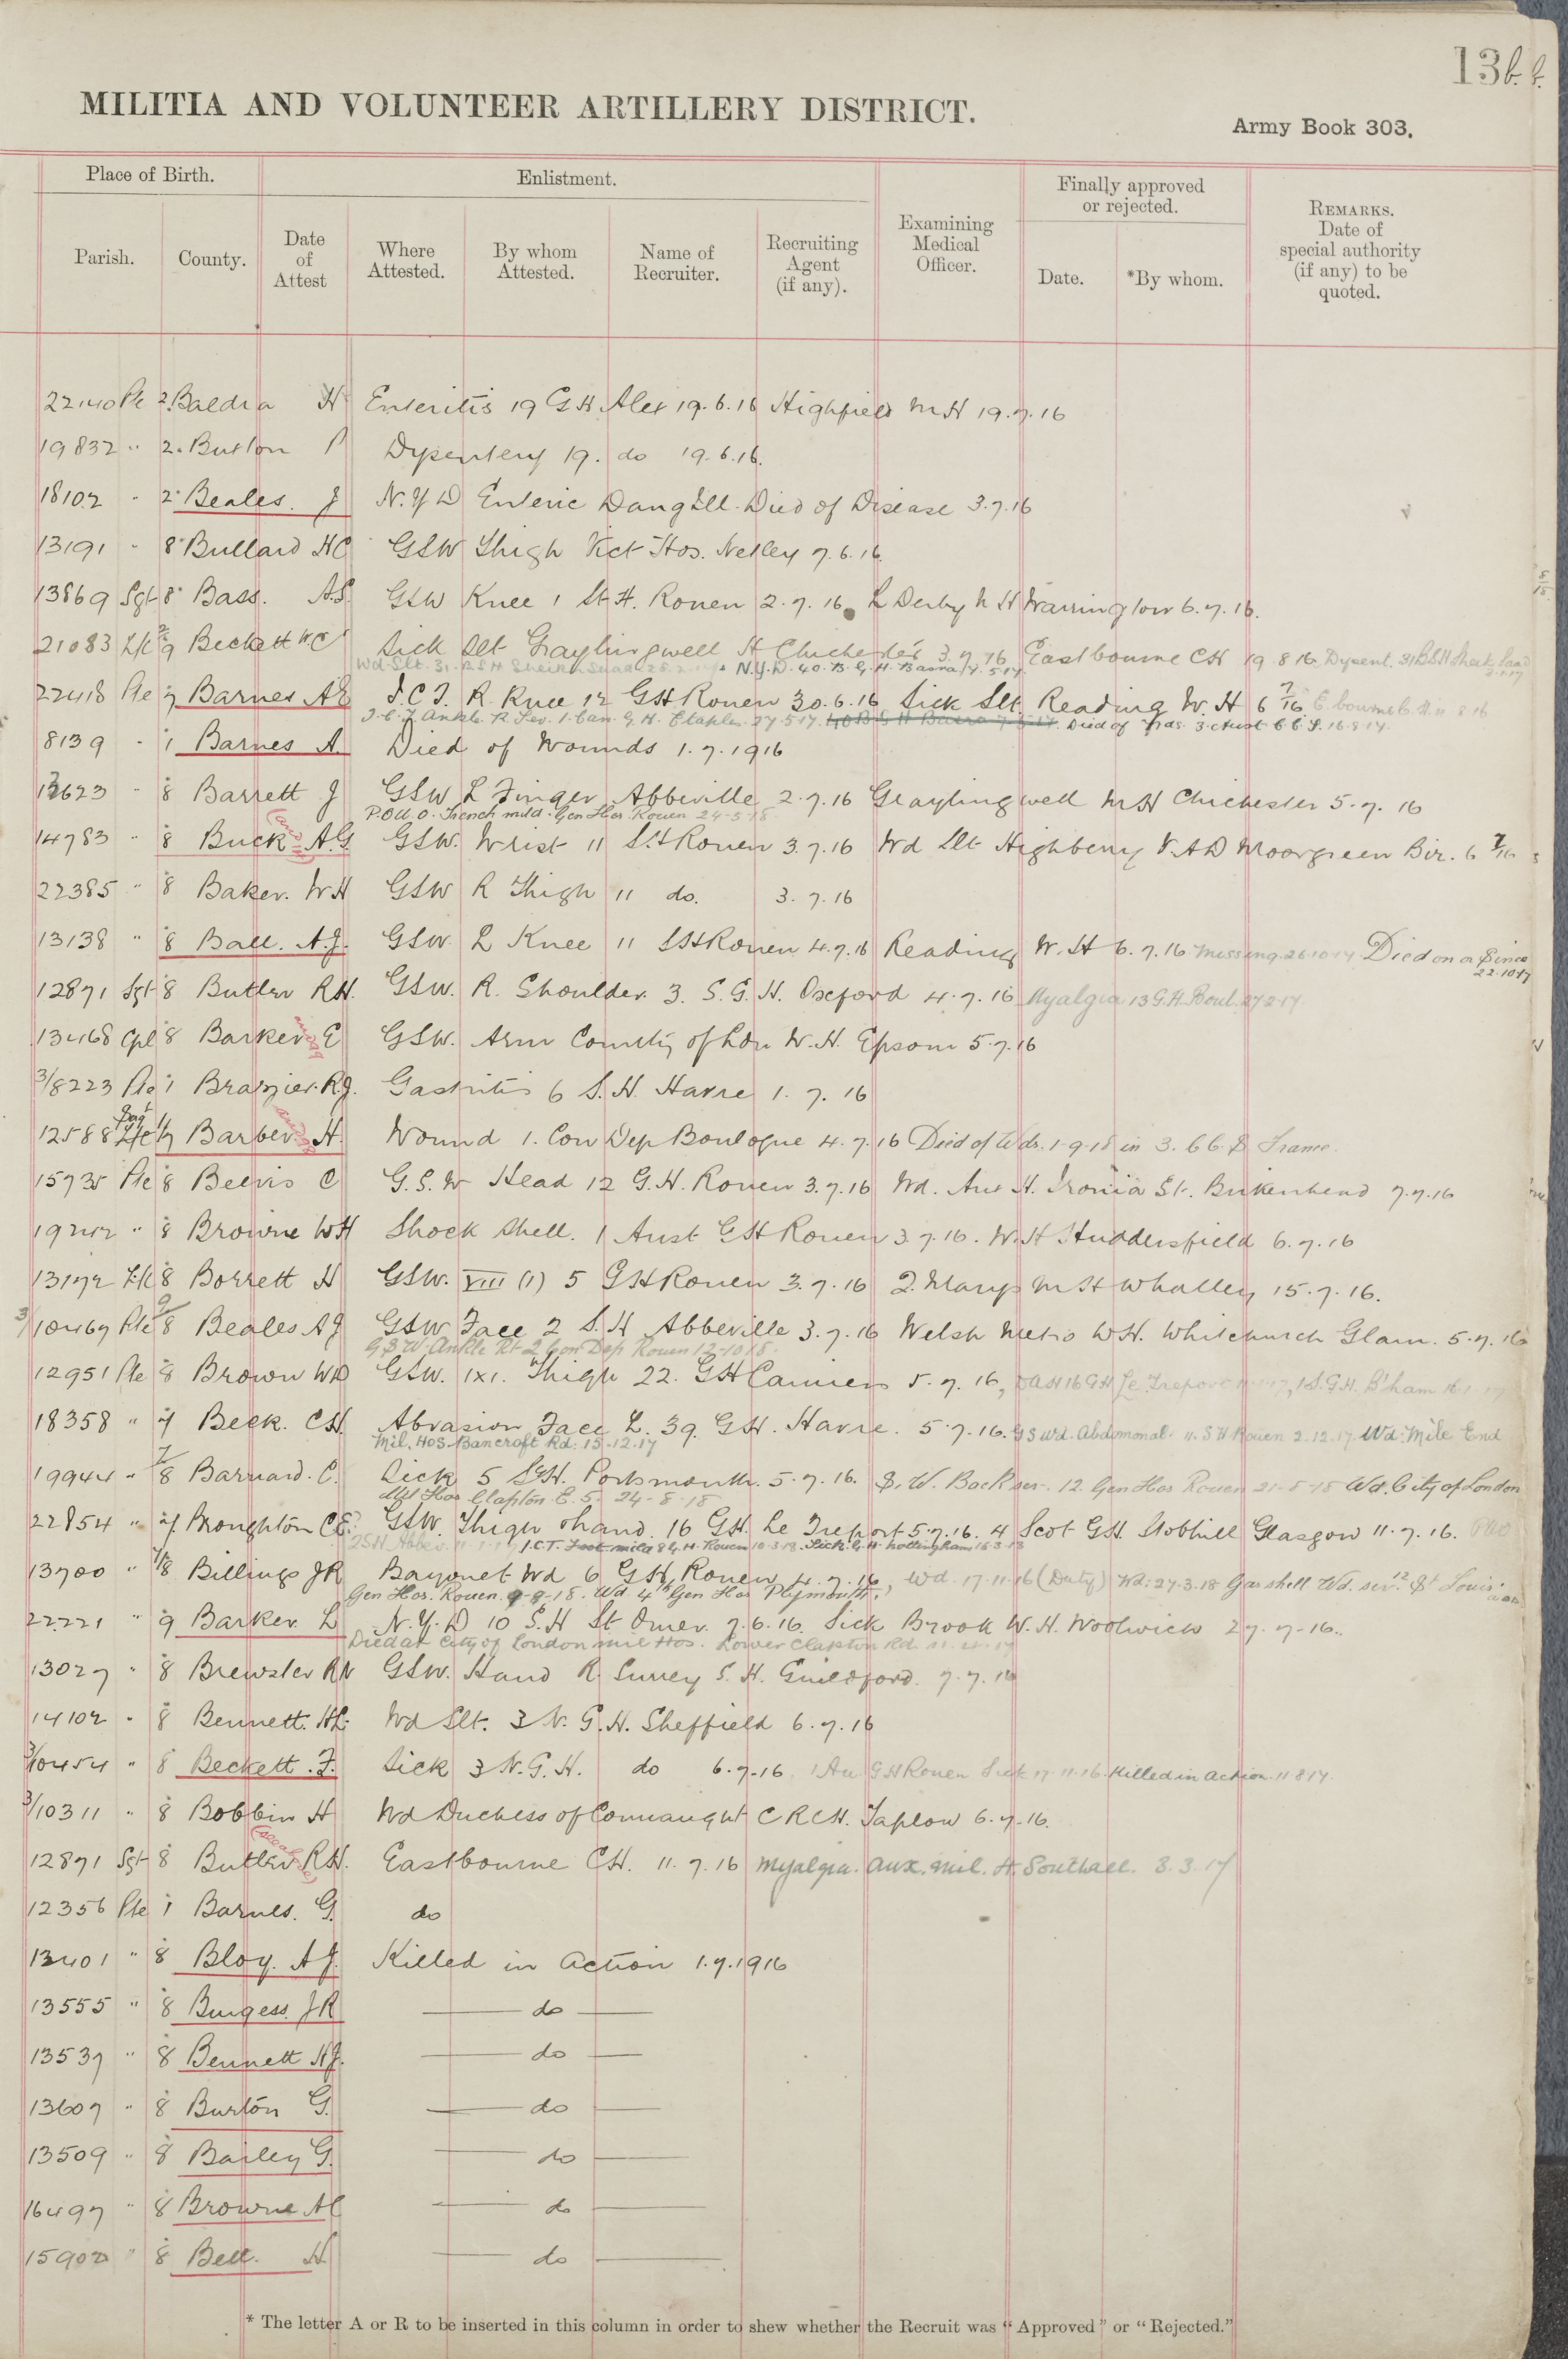 13b.b.
MILITIA AND VOLUNTEER ARTILLERY DISTRICT.
Army Book 303.
Place of Birth.
Enlistment.
Finally approved or rejected.
Parish.
County.
Date of Attest
Where Attested.
By whom Attested.
Name of Recruiter.
Recruiting Agent (if any).
Examining Medical Officer.
Date.
*By whom.
REMARKS. Date of special authority (if any) to be quoted.
22140 Pte 2. Baldra H Enteritis 19 GH Alex 19.6.16 Highfield MH 19.7.16
19832 " 2. Burton P Dysentery 19. do 19.6.16.
18102 " 2 Beales. J N.Y.D Enteric Dang Ill. Died of Disease 3.7.16
13191 " 8 Bullard HC GSW Thigh Vict Hos. Netley 7.6.16.
13869 Sgt 8 Bass. A.S. GSW Knee 1 St H. Rouen 2.7.16 L Derby W H Warrington 6.7.16.
21083 L/C 2/9 Beckett WC Sick Slt Graylingwell H Chichester 3.7.16 Eastbourne CH 19.8.16. Dysent. 31 BSH Sheik Saad
Wd Slt. 31. B.S.H Sheikh Saad N.Y.D. 40. B.G.H. Basra 14.5.17
22418 Pte 7 Barnes A E I.C.T. R Knee 12 GH Rouen 30.6.16 Sick Slt. Reading W.H 6 7/16 E bourne C.H. 11 8 16
I.C.T Ankle R Sev. 1. Can. G.H. Etaples 27.5.17. 40 B G H Basra 7.5.17. Died of Wds. 3. Aust. C.C.S. 16.8.17.
8139 " 1 Barnes A. Died of Wounds 1.7.1916
13623 " 8 Barrett J GSW L Finger Abbeville 2.7.16 Graylingwell MH Chichester 5.7.16
P.U.O. Trench mild. Gen Hos. Rouen 24-5-18
14783 " 8 Buck A.G GSW. Wrist 11 S.H Rouen 3.7.16 Wd Slt Highbery V.A.D Moorgreen Bir. 6 7/16
22385 " 8 Baker. W H GSW R Thigh 11 do. 3.7.16
13138 " 8 Ball. A.J. GSW L Knee 11 SH Rouen 4.7.16 Reading W.H 6.7.16 Missing 26.10.17 Died on or Since 22.10.17
12871 Sgt 8 Butler R.H. GSW. R. Shoulder. 3. S.G.H. Oxford 4.7.16 Myalgia 13 G.H. Boul. 27.2.17.
13468 Cpl 8 Barker E GSW. Arm County of Lon W.H. Epsom 5.7.16
3/8223 Pte 1 Brazier. R.J. Gastritis 6 S.H. Havre 1.7.16
12588 L/C 1/7 Barber. H. Wound 1. Con Dep Boulogne 4.7.16 Died of Wds. 1-9-18 in 3. CCS France.
15735 Pte 8 Beevis C G.S.W Head 12 G.H. Rouen 3.7.16 Wd. Aux H. St. Birkenhead 7.7.16
19242 " 8 Browne W H Shock Shell. 1 Aust GH Rouen 3.7.16. W.H Huddersfield 6.7.16
13172 L/C 8 Borrett H GSW. VIII (1) 5 GH Rouen 3.7.16 Q. Marys M H Whalley 15.7.16.
3/10467 Pte 8 Beales A J GSW Face 2 S.H Abbeville 3.7.16 Welsh Metro W.H. Whitchurch Glam. 5.7.16
G.S.W. Ankle Rt 2 Con Dep Rouen 12-10-18.
12951 Pte 8 Brown WD GSW. IXI. Thigh 22. GH Camiers 5.7.16, 16 GH Le Treport 1 S.G.H. B'ham 16.1.17
18358 " 7 Beck. C.H. Abrasion Face L. 39. G.H. Havre. 5.7.16. GS Wd. Abdomonal. 11. S H Rouen 2.12.17. Wd. Mile End
Mil. Hos. Bancroft Rd. 15-12-17
19944 " 7/8 Barnard. C. Sick 5 SGH. Portsmouth. 5.7.16. G.W. Back ser. 12. Gen Hos Rouen 21-8-18 Wd. City of London
Mil Hos Clapton E. 5. 24-8-18
22854 " 7. Broughton C.E. GSW. Thigh &hand. 16 GH. Le Treport 5.7.16. 4 Scot GH Stobhill Glasgow 11.7.16. PUO
2SH Abbev. I.C.T. Foot mild 8 G.H. Rouen 10.3.18. Sick. G.H. Nottingham 16.3.18
13700 " 7/8 Billings J R Bayonet Wd 6 GH Rouen 4.7.16, Wd. 17.11.16 (Duty) Wd. 27.3.18 Gas shell Wd. sev. 12 St Louis
Gen Hos. Rouen. 9-8-18. Wd 4th Gen Hos Plymouth.
22221 " 9 Barker. L N.Y.D 10 S.H St Omer. 7.6.16. Sick Brook W.H. Woolwich 27.7.16.
Died at City of London Mil Hos. Lower Clapton Rd
13027 " 8 Brewster R N GSW. Hand R. Surrey S.H. Guildford. 7.7.16
14102 " 8 Bennett. H.L. Wd Slt. 3 N.G.H. Sheffield 6.7.16
3/10454 " 8 Beckett. F. Sick 3 N.G.H. do 6.7.16. 1 Au GH Rouen Sick 17.11.16. Killed in action. 11 8 17.
3/10311 " 8 Bobbin H Wd Duchess of Connaught C R C H. Taplow 6.7.16.
12871 Sgt 8 Butler R.H. Eastbourne CH. 11.7.16 Myalgia. Aux. Mil. H. Southall. 3.3.17
12356 Pte 1 Barnes. G. do
13401 " 8 Bloy. A J. Killed in Action 1.7.1916
13555 " 8 Burgess. J R do
13537 " 8 Bennett H J. do
13607 " 8 Burton G. do
13509 " 8 Bailey G. do
16497 " 8 Browne A C do
15902 " 8 Bell. H. do
* The letter A or R to be inserted in this column in order to shew whether the Recruit was "Approved" or "Rejected."